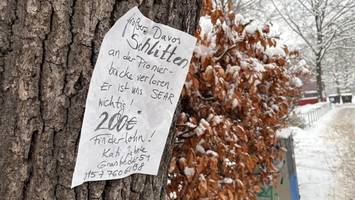 großer Davos
Schlitten
an der Pionier-
brücke verloren.
Er ist uns SEHR
wichtig!
200€
Finderlohn!